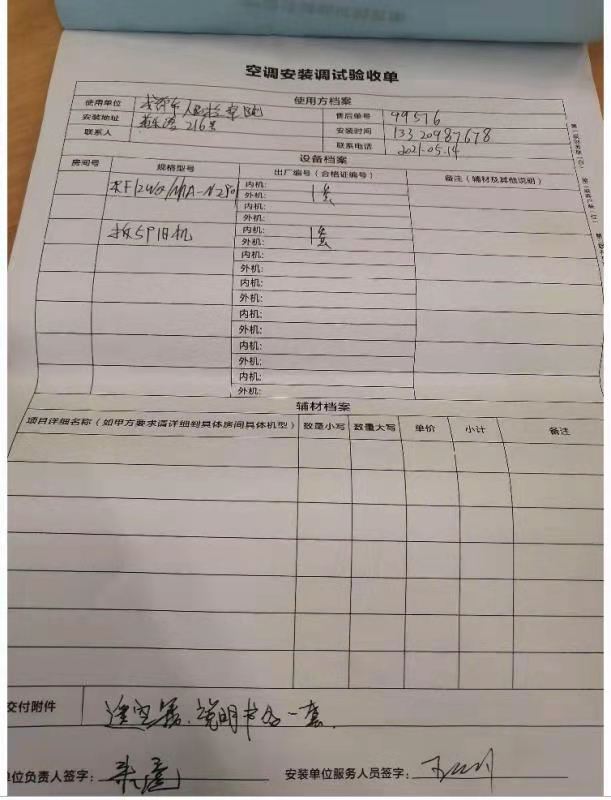 空调安装调试验收单
使用方档案
使用单位 人民检察院 售后单号 99576
安装地址 216号 安装时间 13320987678
联系人 联系电话 2021.05.14
设备档案
房间号 规格型号 出厂编号（合格证编号） 备注（辅材及其他说明）
内机: 1套
外机:
内机:
外机:
拆5P旧机 内机: 1套
外机:
内机:
外机:
内机:
外机:
内机:
外机:
内机:
外机:
内机:
外机:
辅材档案
项目详细名称（如甲方要求请详细到具体房间具体机型） 数量小写 数量大写 单价 小计 备注
交付附件 遥控器、说明书各一套
单位负责人签字: 安装单位服务人员签字: